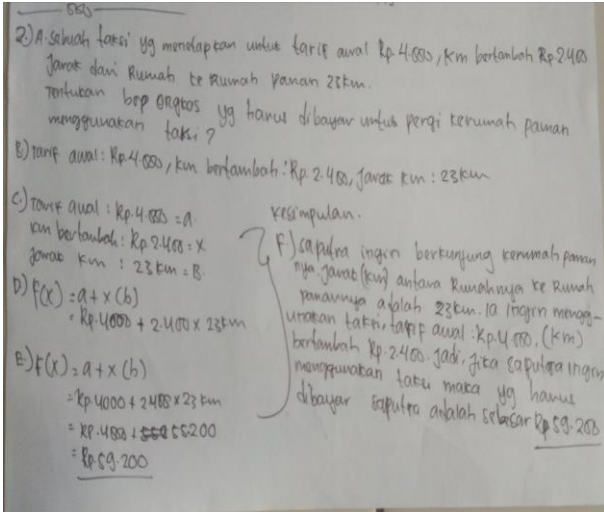 2.) A. sebuah taksi yg menetapkan untuk tarif awal Rp.4.000, Km bertambah Rp.2400
Jarak dari Rumah ke Rumah paman 23km.
Tentukan brp ongkos yg harus dibayar untuk pergi kerumah paman
menggunakan taksi?
B.) Tarif awal : Rp.4.000, km bertambah : Rp.2.400, jarak km : 23km
C.) Tarif awal : Rp.4.000 = a.
km bertambah : Rp 2.400 = x
Jarak km : 23 km = B.
D.) f(x) = a + x (b)
= Rp.4000 + 2.400 x 23km
E.) f(x) = a + x (b)
= Rp.4000 + 2400 x 23 km
= Rp.4000 + 55.200
= Rp.59.200
kesimpulan.
F.) saputra ingin berkunjung kerumah paman
nya. Jarak (km) antara Rumahnya ke Rumah
pamannya adalah 23km. Ia ingin mengg-
unakan taksi, tarif awal : Rp.4.000, (km)
bertambah Rp.2.400. Jadi, jika saputra ingin
menggunakan taksi maka yg harus
dibayar saputra adalah sebesar Rp 59.200